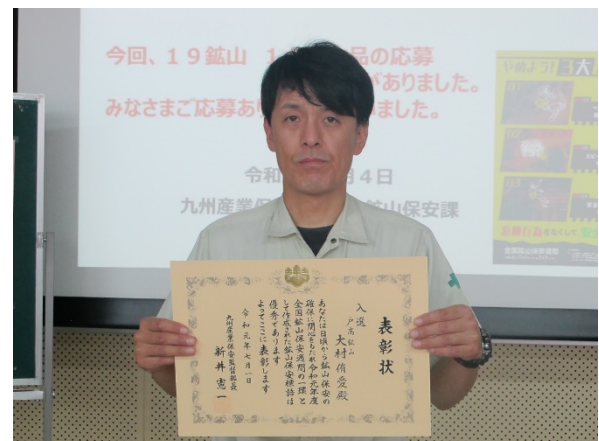 今回、19鉱山 1 品の応募
がありました。
みなさまご応募あり いました。
令和 月4日
九州産業保 鉱山保安課
やめよう!3大
表彰状
入選
戸高鉱山
大村侑愛殿
あなたは日頃から鉱山保安の
確保に関心をもたれ令和元年度
全国鉱山保安週間の一環と
して作成された鉱山保安標語は
優秀であります
よってここに表彰します
令和元年七月一日
九州産業保安監督部長
新井憲一